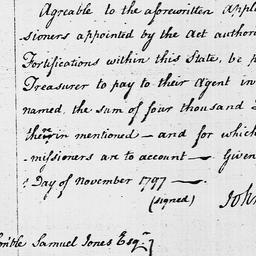 Agreable to the aforewritten Appl
sioners appointed by the Act author
Fortifications within this State, be p
Treasurer to pay to their Agent in
named, the sum of four thousand
therein mentioned — and for which
missioners are to account — Given
Day of November 1797 —
(signed)
John
ble Samuel Jones Esqr